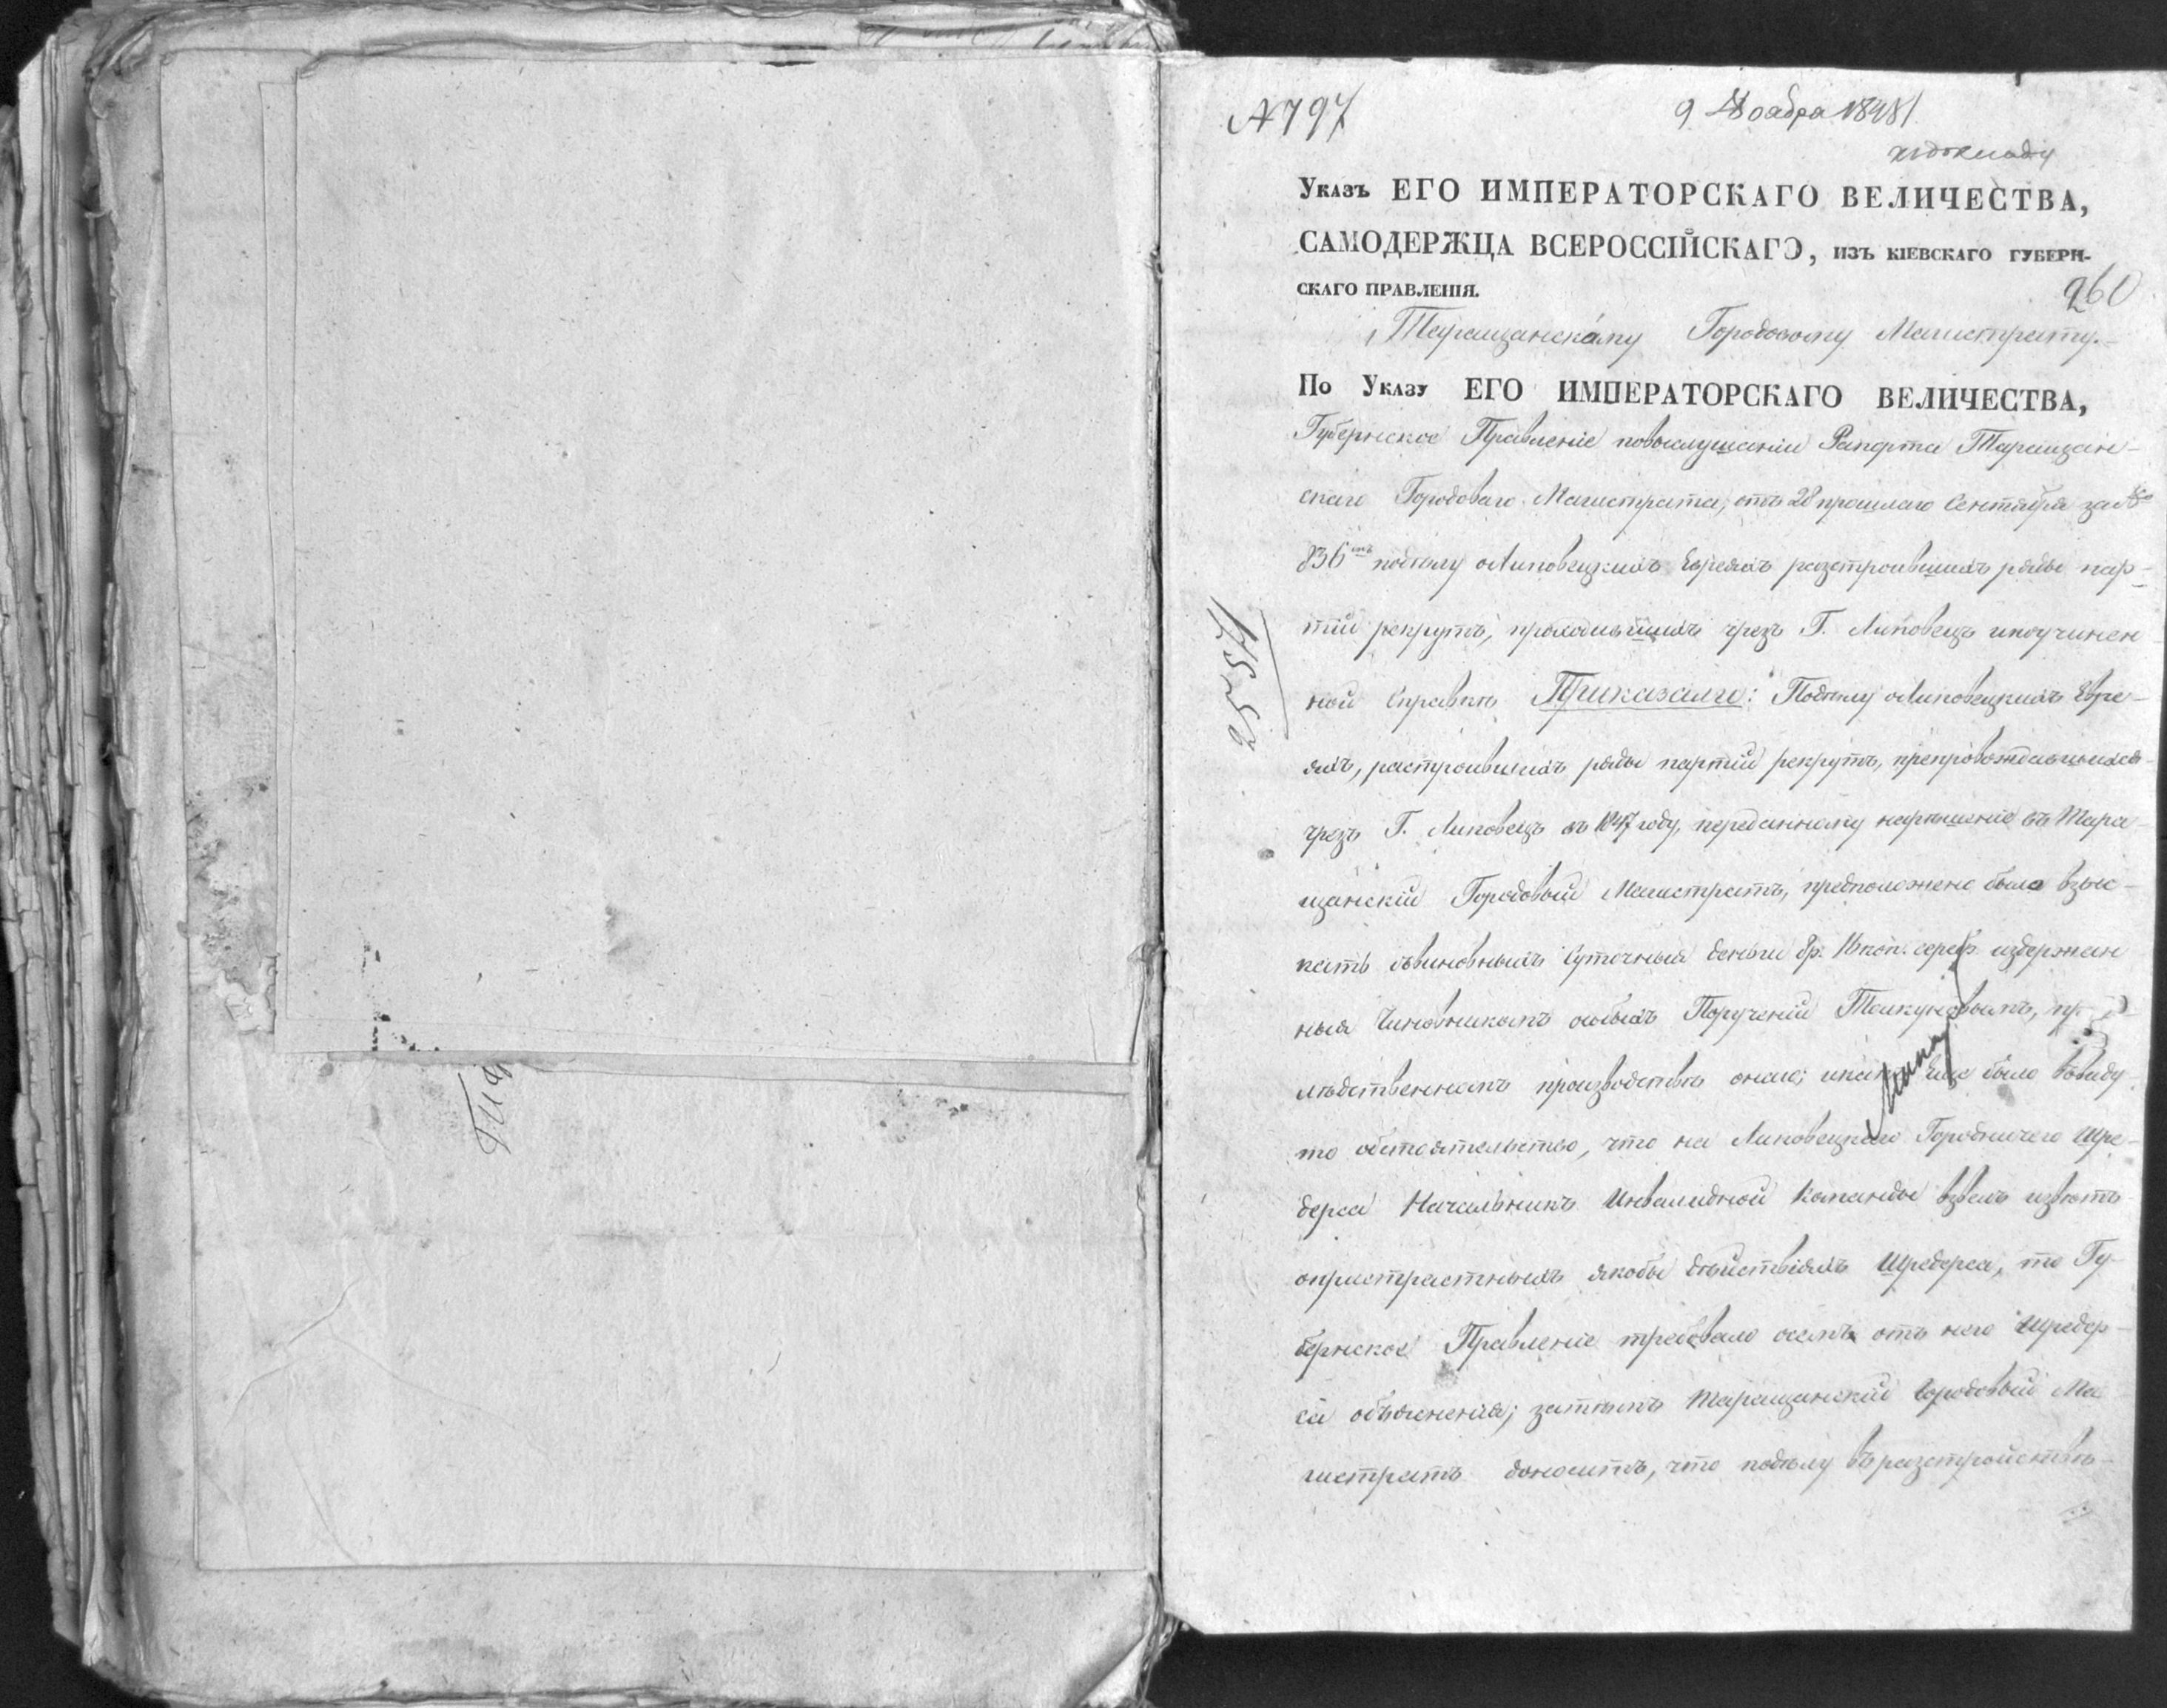 № 797
9 Ноября 1848
к докладу
Указъ ЕГО ИМПЕРАТОРСКАГО ВЕЛИЧЕСТВА,
САМОДЕРЖЦА ВСЕРОССІЙСКАГО, изъ кіевскаго губерн-
скаго правленія.
260
Таращанскому Городовому Магистрату.-
По Указу ЕГО ИМПЕРАТОРСКАГО ВЕЛИЧЕСТВА,
Губернское Правленіе повыслушаніи Рапорта Таращан-
скаго Городоваго Магистрата, отъ 28 прошлаго Сентября за №
836 подѣлу оЛиповецкихъ Евреяхъ разстроившихъ ряды пар-
тіи рекрутъ, проходившихъ чрезъ Г. Липовецъ ипоучинен
ной Справкѣ Приказали: Подѣлу оЛиповецкихъ Евре-
яхъ, растроившихъ ряды партіи рекрутъ, препровождавшихся
чрезъ Г. Липовецъ въ 1847 году, переданному нарѣшеніе въ Тара-
щанскій Городовый Магистратъ, предположено было взыс-
кать съвиновныхъ Суточныя деньги 8р. 16 коп. сереб. издержан
ныя Чиновникомъ особыхъ Порученій
слѣдственномъ производствѣ онаго; было ввиду
то обстоятельство, что на Липовецкаго Городничего Шре-
дерса Начальникъ Инвалидной Команды взвелъ извѣтъ
опристрастныхъ якобы дѣйствіяхъ Шредерса, то Гу-
бернское Правленіе требовало осемъ отъ него Шредер-
са объясненія; затѣмъ Таращанскій Городовый Ма
гистратъ доноситъ, что подѣлу въразстройствѣ
25571